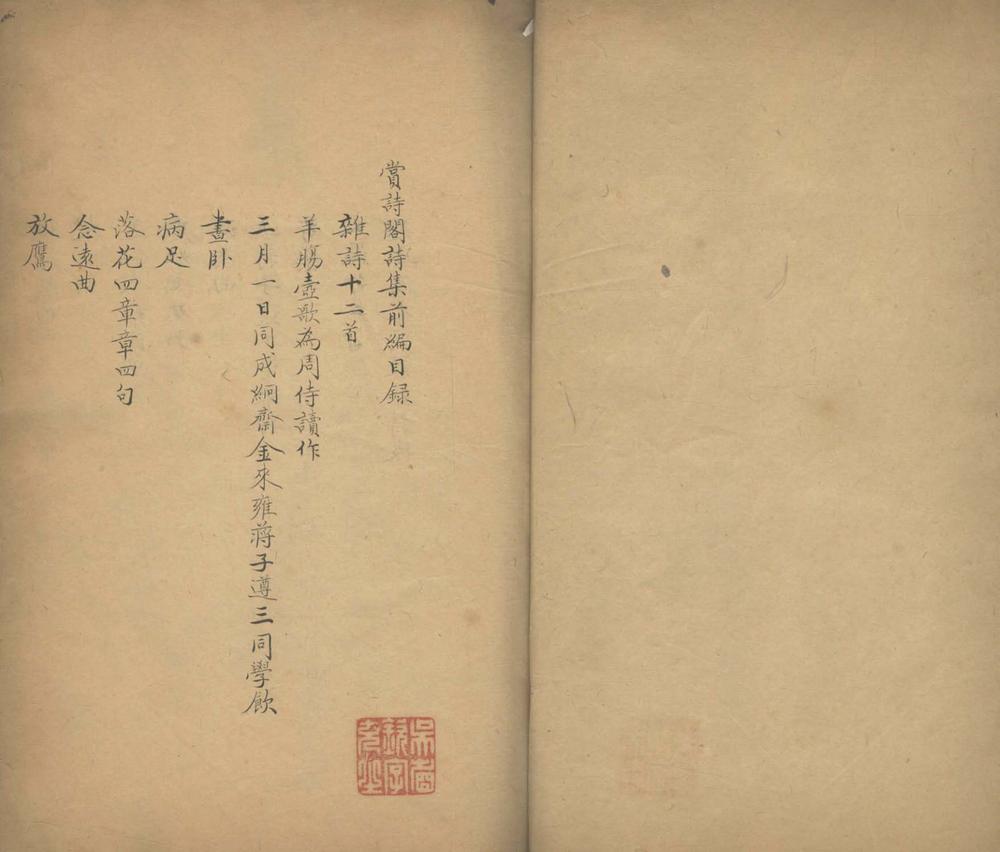 賞詩閣詩集前編目録
雜詩十二首
羊腸壺歌為周侍讀作
三月一日同成絅齋金來雍蔣子遵三同學飲
晝卧
病足
落花四章章四句
念遠曲
放鷹